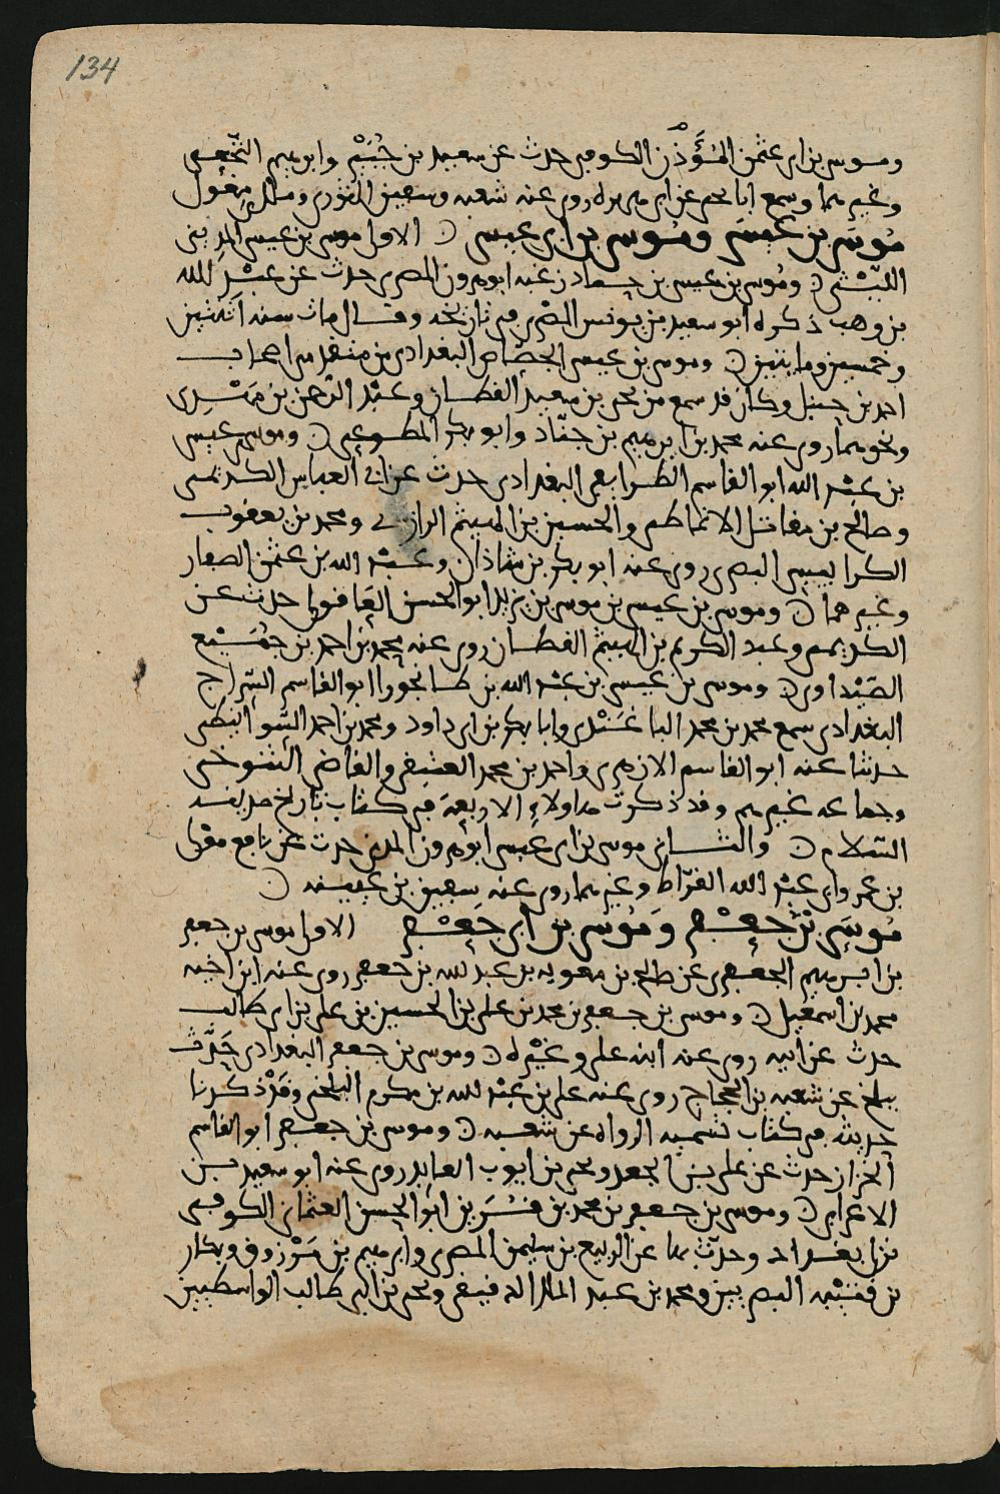 134
وموسى بن ابى عثمن المؤذن الكوفى حدث عن سعيد بن جبير وابرهيم النخعى
وغيرهما وسمع ابا يحيى عن ابى هريره روى عنه شعبه وسفين الثورى ومالك مغول
موسى بن عيسى وموسى بن ابى عيسى الاول موسى بن عيسى المدينى
الليثى وموسى بن عيسى بن حماد زغبه ابو هرون المصرى حدث عن عبد الله
بن وهب ذكره ابو سعيد بن يونس المصرى فى تاريخه وقال مات سنه اثنتين
وخمسين ومايتين وموسى بن عيسى الجصاص البغدادى من متقدمى اصحاب
احمد بن حنبل وكان قد سمع من يحيى بن سعيد القطان وعبد الرحمن بن مهدى
ونحوهما روى عنه محمد بن ابرهيم بن جناد وابو بكر المطوعى وموسى عيسى
بن عبد الله ابو القاسم الطوابقى البغدادى حدث عن ابى العباس الكديمى
وصالح بن مقاتل الانماطى والحسين بن الهيثم الرازى ومحمد بن يعقوب
الكرابيسى البصرى روى عنه ابو بكر بن شاذان وعبد الله بن عثمن الصفار
وغيرهما وموسى بن عيسى بن موسى بن يزيد ابو الحسن العاقولى حدث عن
الكديمى وعبد الكريم بن الهيثم القطان روى عنه محمد بن احمد بن جميع
الصيداوى وموسى بن عيسى بن عبد الله بن طانجور ابو القاسم السراج
البغدادى سمع محمد بن محمد الباغندى وابا بكر بن ابى داود ومحمد بن احمد الشوانيطى
حدثنا عنه ابو القاسم الازهرى واحمد بن محمد العتيقى والقاضى التنوخى
وجماعه غيرهم وقد ذكرت هاولاء الاربعة فى كتاب تاريخ مدينه
السلام والثانى موسى بن ابى عيسى ابو هرون المدنى حدث عن نافع مولى
بن عمر وابى عبد الله القراظ وغيرهما روى عنه سفين بن عيينه
موسى بن جعفر وموسى بن ابى جعفر الاول موسى بن جعفر
بن ابرهيم الجعفرى عن صالح بن معويه بن عبد الله بن جعفر روى عنه ابن اخيه
محمد بن اسمعيل وموسى بن جعفر بن محمد بن على بن الحسين بن على بن ابى طالب
حدث عن ابيه روى عنه ابنه على وغيره وموسى بن جعفر البغدادى حدث
ببلخ عن شعبه بن الحجاج روى عنه على بن عبد الله بن مكرم البلخى وقد ذكرنا
حديثه فى كتاب تسميه الرواه عن شعبه وموسى بن جعفر ابو القاسم
الخزاز حدث عن على بن الجعد ويحيى بن ايوب العابد روى عنه ابو سعيد بن
الاعرابى وموسى بن جعفر بن محمد بن قرين ابو الحسن العثمانى الكوفى
نزل بغداد وحدث بها عن الربيع بن سليمن المصرى وابرهيم بن مرزوق وبكار
بن قتيبه البصريين ومحمد بن عبد الملك الدقيقى ويحيى بن ابى طالب الواسطيين